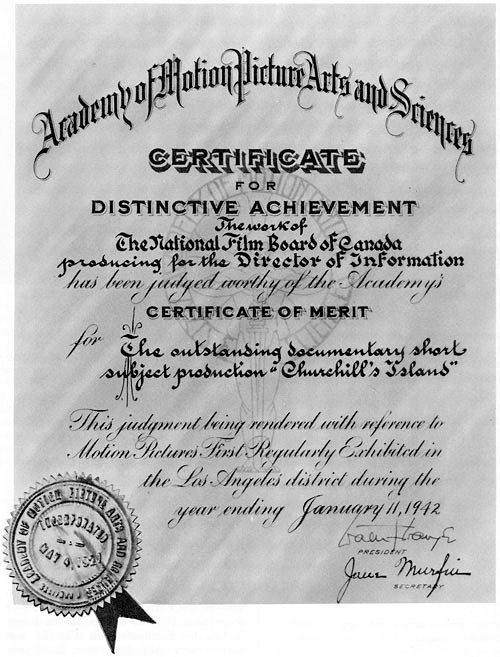 Academy of Motion Picture Arts and Sciences
CERTIFICATE
FOR
DISTINCTIVE ACHIEVEMENT
The work of
The National Film Board of Canada
producing for the Director of Information
has been judged worthy of the Academy's
CERTIFICATE OF MERIT
for The outstanding documentary short
subject production "Churchill's Island"
This judgment being rendered with reference to
Motion Pictures First Regularly Exhibited in
the Los Angeles district during the
year ending January 11, 1942
PRESIDENT
Jane Murfin
SECRETARY
ACADEMY OF MOTION PICTURE ARTS AND SCIENCES
INCORPORATED
MAY 4, 1927